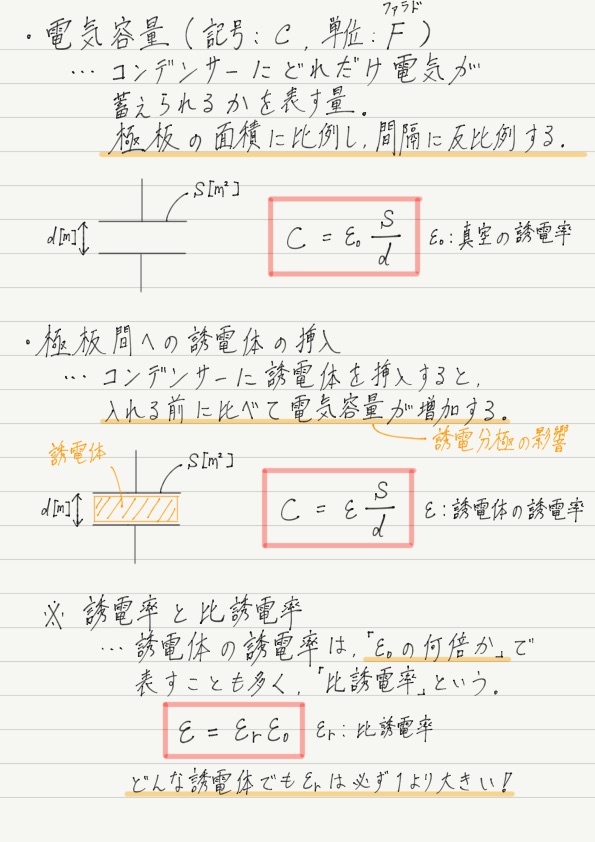 ファラド
・電気容量(記号: C, 単位: F)
… コンデンサーにどれだけ電気が
蓄えられるかを表す量。
極板の面積に比例し,間隔に反比例する。
S[m²]
d[m]
C = ε₀ S/d
ε₀:真空の誘電率
・極板間への誘電体の挿入
… コンデンサーに誘電体を挿入すると,
入れる前に比べて電気容量が増加する。
誘電分極の影響
誘電体
S[m²]
d[m]
C = ε S/d
ε:誘電体の誘電率
※ 誘電率と比誘電率
… 誘電体の誘電率は,「ε₀の何倍か」で
表すことも多く,「比誘電率」という。
ε = εrε₀
εr: 比誘電率
どんな誘電体でもεrは必ず1より大きい!